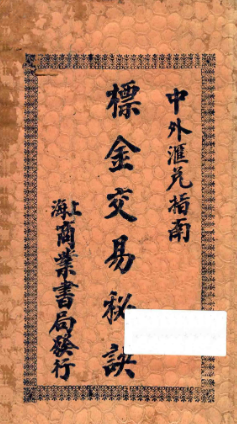 中外滙兌指南
標金交易秘訣
上海商業書局發行